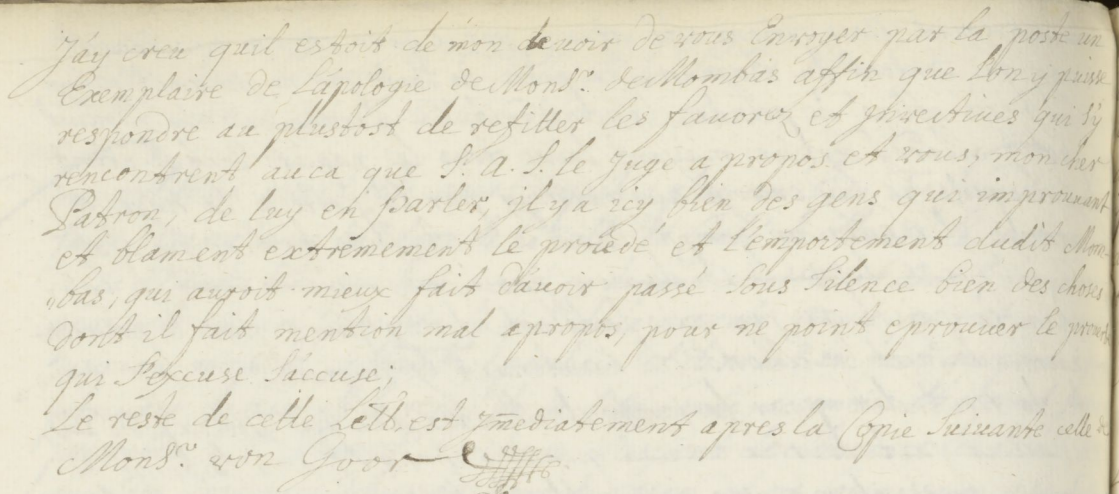 J'ay creu quil estoit de mon devoir de vous Envoyer par la poste un
Exemplaire de l'apologie de Monsr. de Mombas affin que l'on y puisse
respondre au plustost de refuter les et Jnvectives qui s'y
rencontrent S. A. S. le Juge a propos et vous, mon cher
Patron, de luy en parler, jl y a icy bien des gens qui improuvant
et blament extremement le procedé et l'emportement dudit Mom-
„bas, qui auroit mieux fait d'avoir passé sous silence bien des choses
dont il fait mention mal apropos, pour ne point eprouver le
qui s'excuse s'accuse;
Le reste de cette est jm̅ediatement apres la Copie suivante celle de
Monsr. von Goor